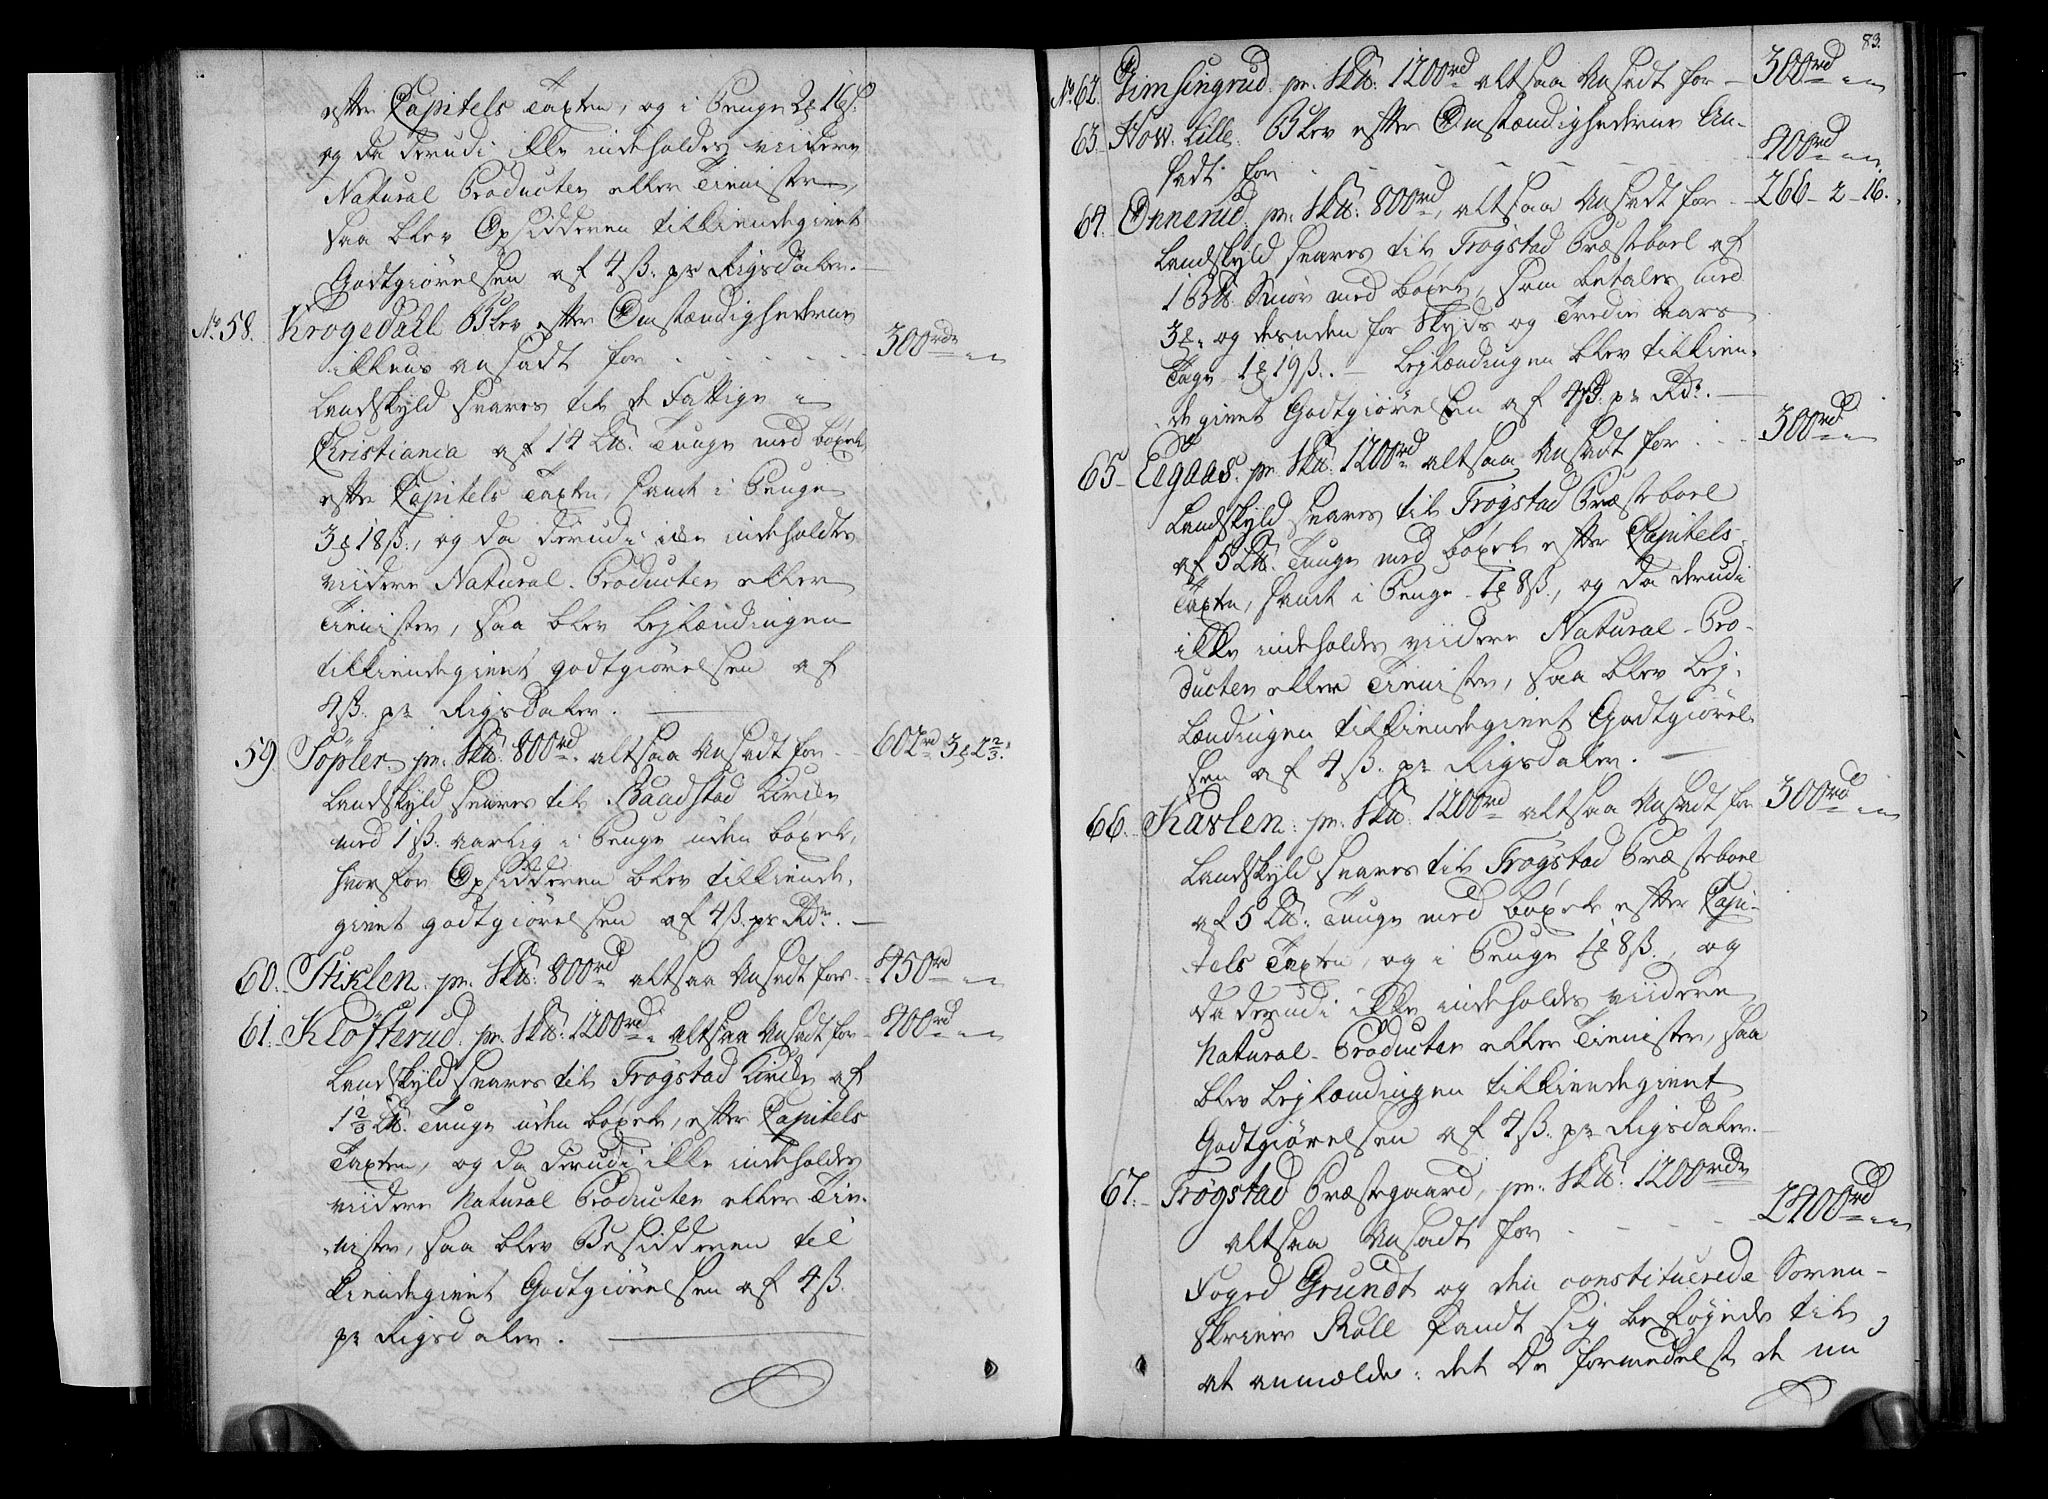 efter Capitels Taxten, og i Penge 2 16 ß.
og da derudi ikke indeholdes viidere
Natural Producter eller Tienister,
saa blev Opsidderen tilkiendegivet
Godtgiørelsen af 4 ß. pr Rigsdaler.
No. 58. Krogedahl Blev efter Omstændighederne
ikkuns ansadt for 300 rdr
Landskyld svares til de Fattige i
Christiania af 14 L℔. Tunge med bøxel
efter Capitels Taxten, samt i Penge
3 18 ß., og da derudi ikke indeholdes
viidere Natural-Producter eller
Tienister, saa blev Lejlændingen
tilkiendegivet godtgiørelsen af
4 ß. pr Rigsdaler.
59. Töpler pr. Sk℔. 800 rd. altsaa Ansadt for 602 rd 3 2 2/3.
Landskyld svares til Baadstad Kirke
med 1 ß. aarlig i Penge uden bøxel,
hvorfor Opsidderen blev tilkiende-
givet godtgiørelsen af 4 ß. pr Rdr.
60. Stiklen pr. Sk℔. 800 rd altsaa Ansadt for 450 rd
61. Klöfterud pr. Sk℔. 1200 rd. altsaa Ansadt for 400 rd
Landskyld svares til Trøgstad Kirke af
1 2/3 L℔. Tunge uden bøxel, efter Capitels
Taxten, og da derudi ikke indeholdes
viidere Natural Producter eller Tie-
nister, saa blev Besidderen til
kiendegivet Godtgiørelsen af 4 ß.
pr Rigsdaler.
83.
No. 62. Gimsingrud pr. Sk℔. 1200 rd altsaa Ansadt for 300 rd
63. How lille. Blev efter Omstændighederne An-
sadt for 400 rd
64. Onnerud pr. Sk℔. 800 rd, altsaa Ansadt for 266 - 2 - 16.
Landskyld svares til Trøgstad Præsteboel af
1 B℔. Smør med bøxel, som betales med
3 og desuden for Skyds og Tredie Aars
Tage 1 19 ß. - Lejlændingen blev tilkien-
degivet Godtgiørelsen af 4 ß. pr Rdr.
65. Eegaas pr. Sk℔. 1200 rd altsaa Ansadt for 300 rd
Landskyld svares til Trøgstad Præsteboel
af 5 L℔. Tunge med bøxel efter Capitels
Taxten, samt i Penge 1 8 ß., og da derudi
ikke indeholdes viidere Natural-Pro-
ducter eller Tienister, saa blev Lej-
lændingen tilkiendegivet Godtgiørel-
sen af 4 ß. pr Rigsdaler.
66. Kaslen: pr. Sk℔. 1200 rd altsaa Ansadt for 300 rd
Landskyld svares til Trøgstad Præsteboel
af 5 L℔. Tunge med bøxel efter Capi-
tels Taxten, og i Penge 1 8 ß., og
da derudi ikke indeholdes viidere
Natural-Producter eller Tienister, saa
blev Lejlændingen tilkiendegivet
Godtgiørelsen af 4 ß. pr Rigsdaler.
67. Trøgstad Præstegaard, pr. Sk℔. 1200 rdr
altsaa Ansadt for 2400 rd
Foged Grundt og den constituerede Soren-
skriver Roll fandt sig beføyede til,
at anmælde: det De formedelst de nu